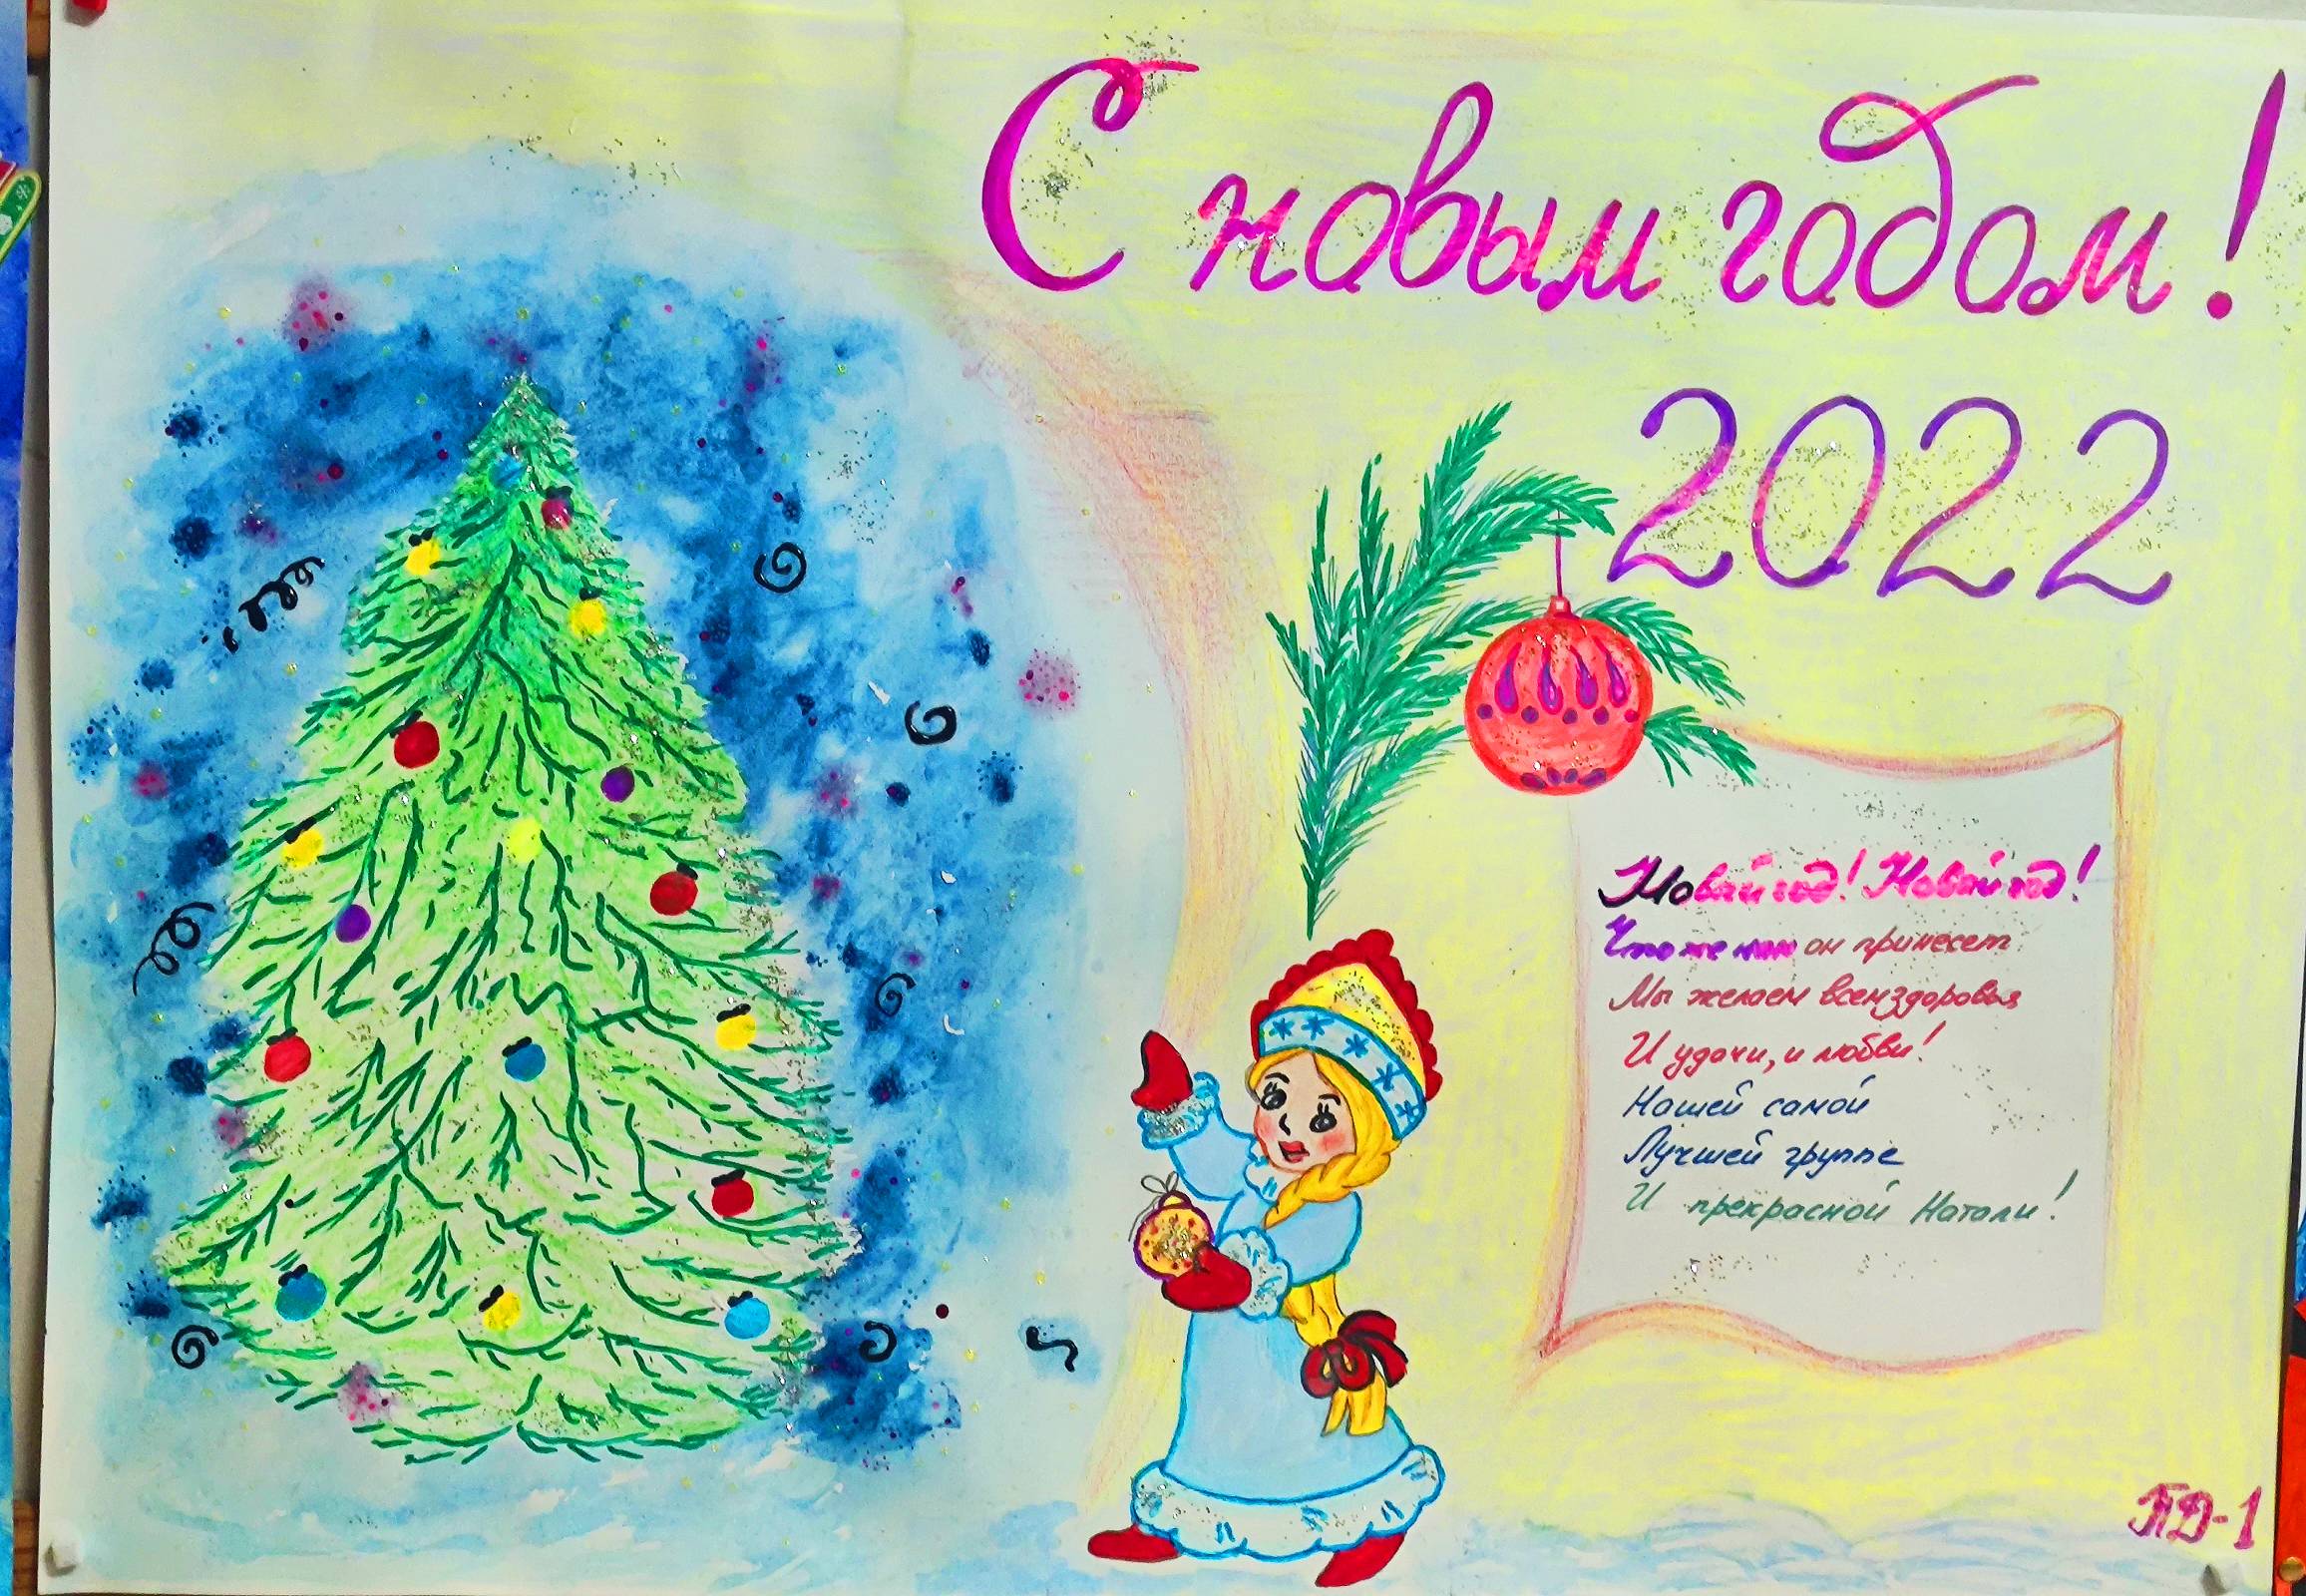 С новым годом!
2022
Новый год! Новый год!
Что же нам он принесет
Мы желаем всем здоровья
И удачи, и любви!
Нашей самой
Лучшей группе
И прекрасной Натали!
ПД-1